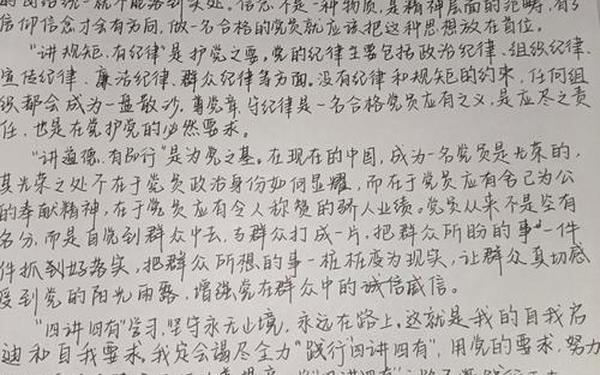 的团结统一就不能落到实处。信念不是一种物质，是精神层面的范畴，有了
信仰信念才会有方向，做一名合格的党员就应该把这种思想放在首位。
"讲规矩、有纪律"是护党之要。党的纪律主要包括政治纪律、组织纪律、
宣传纪律、廉洁纪律、群众纪律等方面。没有纪律和规矩的约束，任何组
织都会成为一盘散沙，尊党章、守纪律是一名合格党员应有之义，是应尽之责
任，也是在党护党的必然要求。
"讲道德、有品行"是为党之基。在现在的中国，成为一名党员是光荣的，
其光荣之处不在于党员政治身份如何显耀，而在于党员应有舍己为公
的奉献精神，在于党员应有令人称赞的骄人业绩。党员从来不是空有
名分，而是自觉到群众中去，与群众打成一片，把群众所盼的事一件
件抓到好落实，把群众所想的事一桩桩变为现实，让群众真切感
受到党的阳光雨露，增强党在群众中的诚信威信。
"四讲四有"学习、坚守永无止境，永远在路上。这就是我的自我启
迪和自我要求。我定会竭尽全力"践行四讲四有"，用党的要求，努力